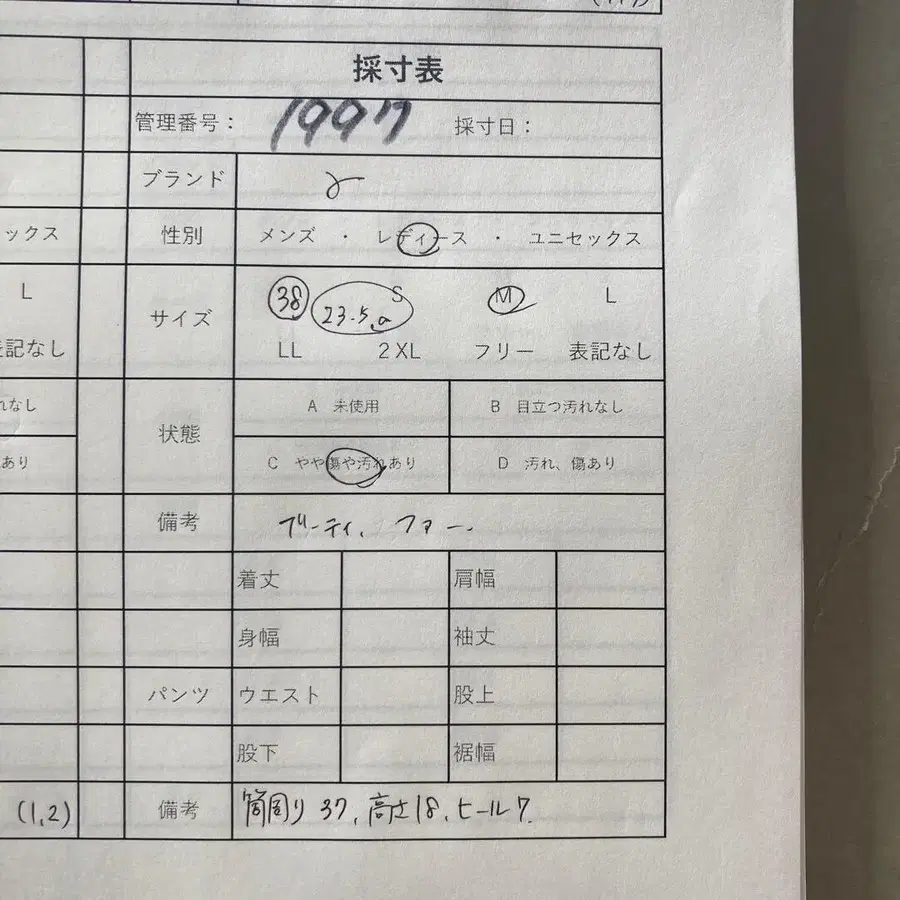 採寸表
管理番号： 1997 採寸日：
ブランド
ックス 性別 メンズ ・ レディース ・ ユニセックス
L サイズ 38 23.5 S M L
表記なし LL 2XL フリー 表記なし
れなし 状態 A 未使用 B 目立つ汚れなし
あり C やや傷や汚れあり D 汚れ、傷あり
備考 ブーティ、ファー、
着丈 肩幅
身幅 袖丈
パンツ ウエスト 股上
股下 裾幅
(1,2) 備考 筒周り 37、高さ18、ヒール7.